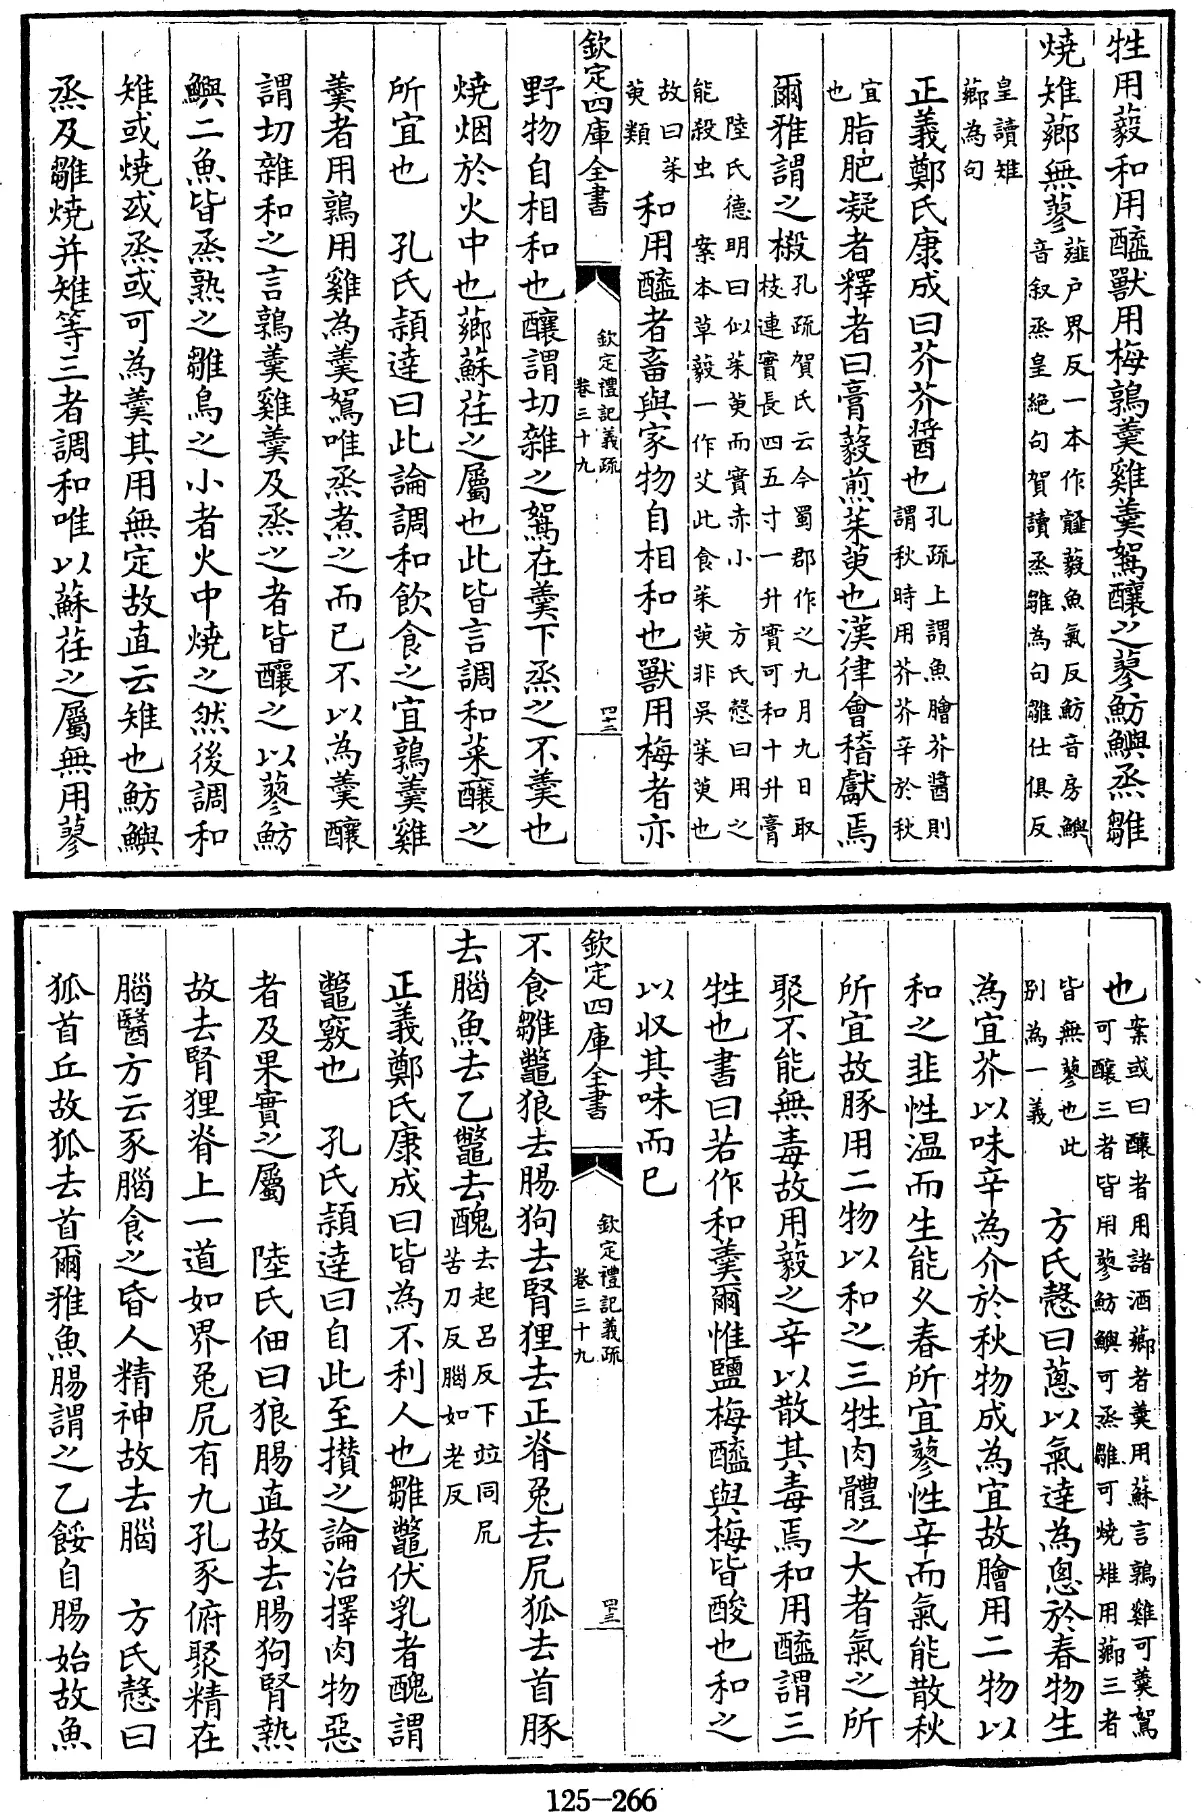 牲用藙和用醯獸用梅鶉羹雞羹鴽釀之蓼魴鱮烝雛
燒雉薌無蓼薤户界反一本作䪥藙魚氣反魴音房鱮
音叙烝皇絶句賀讀烝雛為句雛仕俱反
皇讀雉
薌為句
正義鄭氏康成曰芥芥醬也孔疏上謂魚膾芥醬則
謂秋時用芥芥辛於秋
宜
也
脂肥凝者釋者曰膏藙煎茱萸也漢律㑹稽獻焉
爾雅謂之樧孔疏賀氏云今蜀郡作之九月九日取
枝連實長四五寸一升實可和十升膏
陸氏德明曰似茱萸而實赤小 方氏慤曰用之
能殺虫 案本草藙一作艾此食茱萸非吳茱萸也
故曰茱
萸類
和用醯者畜與家物自相和也獸用梅者亦
欽定四庫全書
欽定禮記義疏
卷三十九
四十二
野物自相和也釀謂切雜之鴽在羹下烝之不羹也
燒烟於火中也薌蘇荏之屬也此皆言調和菜釀之
所宜也 孔氏頴達曰此論調和飲食之宜鶉羹雞
羹者用鶉用雞為羹鴽唯烝煮之而已不以為羹釀
謂切雜和之言鶉羹雞羹及烝之者皆釀之以蓼魴
鱮二魚皆烝熟之雛鳥之小者火中燒之然後調和
雉或燒或烝或可為羹其用無定故直云雉也魴鱮
烝及雛燒并雉等三者調和唯以蘇荏之屬無用蓼
也案或曰釀者用諸酒薌者羹用蘇言鶉雞可羹鴽
可釀三者皆用蓼魴鱮可烝雛可燒雉用薌三者
皆無蓼也此
别為一義
方氏慤曰蔥以氣達為恖於春物生
為宜芥以味辛為介於秋物成為宜故膾用二物以
和之韭性温而生能乆春所宜蓼性辛而氣能散秋
所宜故豚用二物以和之三牲肉體之大者氣之所
聚不能無毒故用藙之辛以散其毒焉和用醯謂三
牲也書曰若作和羹爾惟鹽梅醯與梅皆酸也和之
以収其味而已
欽定四庫全書
欽定禮記義疏
卷三十九
四十三
不食雛鼈狼去腸狗去腎狸去正脊兎去尻狐去首豚
去腦魚去乙鼈去醜去起吕反下竝同尻
苦刀反腦如老反
正義鄭氏康成曰皆為不利人也雛鼈伏乳者醜謂
鼈竅也 孔氏頴達曰自此至攅之論治擇肉物惡
者及果實之屬 陸氏佃曰狼腸直故去腸狗腎熱
故去腎狸脊上一道如界兎尻有九孔豕俯聚精在
腦醫方云豕腦食之昏人精神故去腦 方氏慤曰
狐首丘故狐去首爾雅魚腸謂之乙餒自腸始故魚
125-266